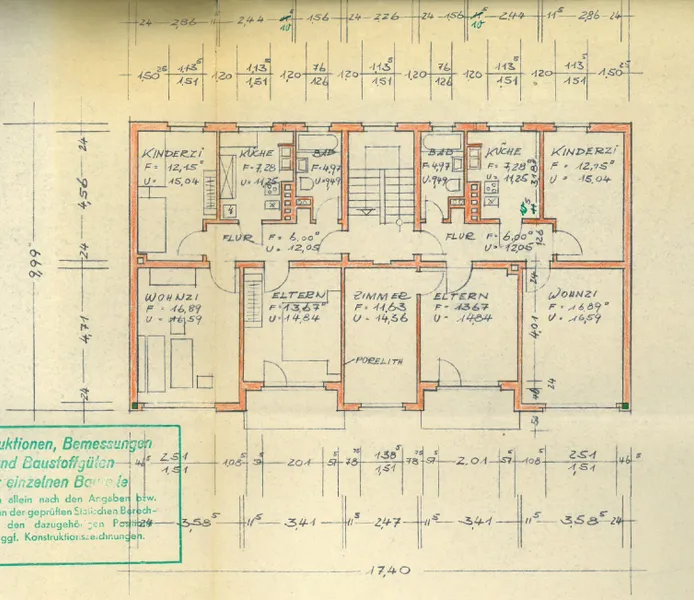 24 2,86 11⁵ 2,44 11⁵ 10 1,56 24 2,26 24 1,56 11⁵ 10 2,44 11⁵ 2,86 24
1,50²⁵ 1,13⁵ 1,20 1,13⁵ 1,20 76 1,20 1,13⁵ 1,20 76 1,20 1,13⁵ 1,20 1,13⁵ 1,50²⁵
1,51 1,51 126 1,51 126 1,51 1,51
KINDERZI KÜCHE BAD BAD KÜCHE KINDERZI
F = 12,15⁰ F=7,28 F=4,97 F=4,97 F=7,28 F = 12,15⁰
U = 15,04 U=11,25 U=9,49 U=9,49 U=11,25 U = 15,04
FLUR F = 6,00⁰ FLUR F = 6,00⁰
U = 12,05 U = 12,05
WOHNZI ELTERN ZIMMER ELTERN WOHNZI
F = 16,89 F = 13,67⁰ F = 11,63 F = 13,67 F = 16,89⁰
U = 16,59 U = 14,84 U = 14,36 U = 14,84 U = 16,59
PORELITH
24
4,56
24
4,71
24
9,99⁰
3,18⁵
1,26
24
4,01
24
uktionen, Bemessungen
nd Baustoffgüten
einzelnen
allein nach den Angaben bzw.
n der geprüften Statischen Berech-
den dazugehörigen
ggf. Konstruktionszeichnungen.
46⁵ 2,51 1,08⁵ 2,01 57 78 1,38 78 57 2,01 57 1,08⁵ 2,51 46⁵
1,51 1,51 1,51
24 3,58⁵ 11⁵ 3,41 11⁵ 2,47 11⁵ 3,41 11⁵ 3,58⁵ 24
17,40